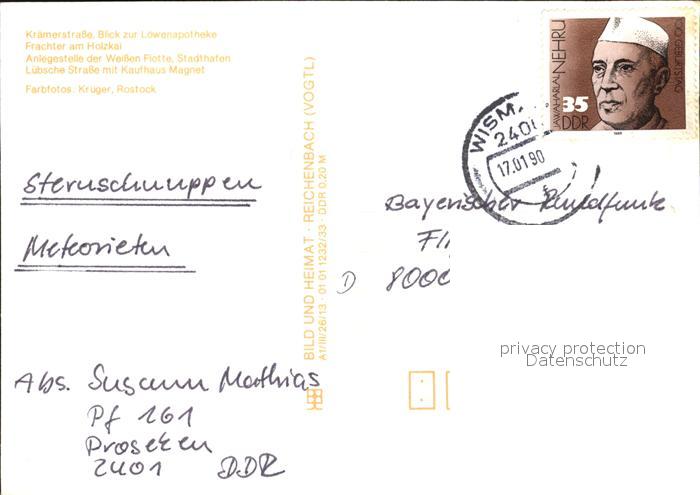 Krämerstraße, Blick zur Löwenapotheke
Frachter am Holzkai
Anlegestelle der Weißen Flotte, Stadthafen
Lübsche Straße mit Kaufhaus Magnet
Farbfotos: Krüger, Rostock
BILD UND HEIMAT · REICHENBACH (VOGTL)
A1/III/26/13 · 01 01 1232/33 · DDR 0,20 M
JAWAHARLAL NEHRU
100. GEBURTSTAG
35
DDR
1989
WISM
2400
17.01.90
Sternschnuppen
Meteorieten
Bayerischer Rundfunk
D 8000
privacy protection
Datenschutz
Abs. Susann Mathias
Pf 161
Proseken
2401 DDR